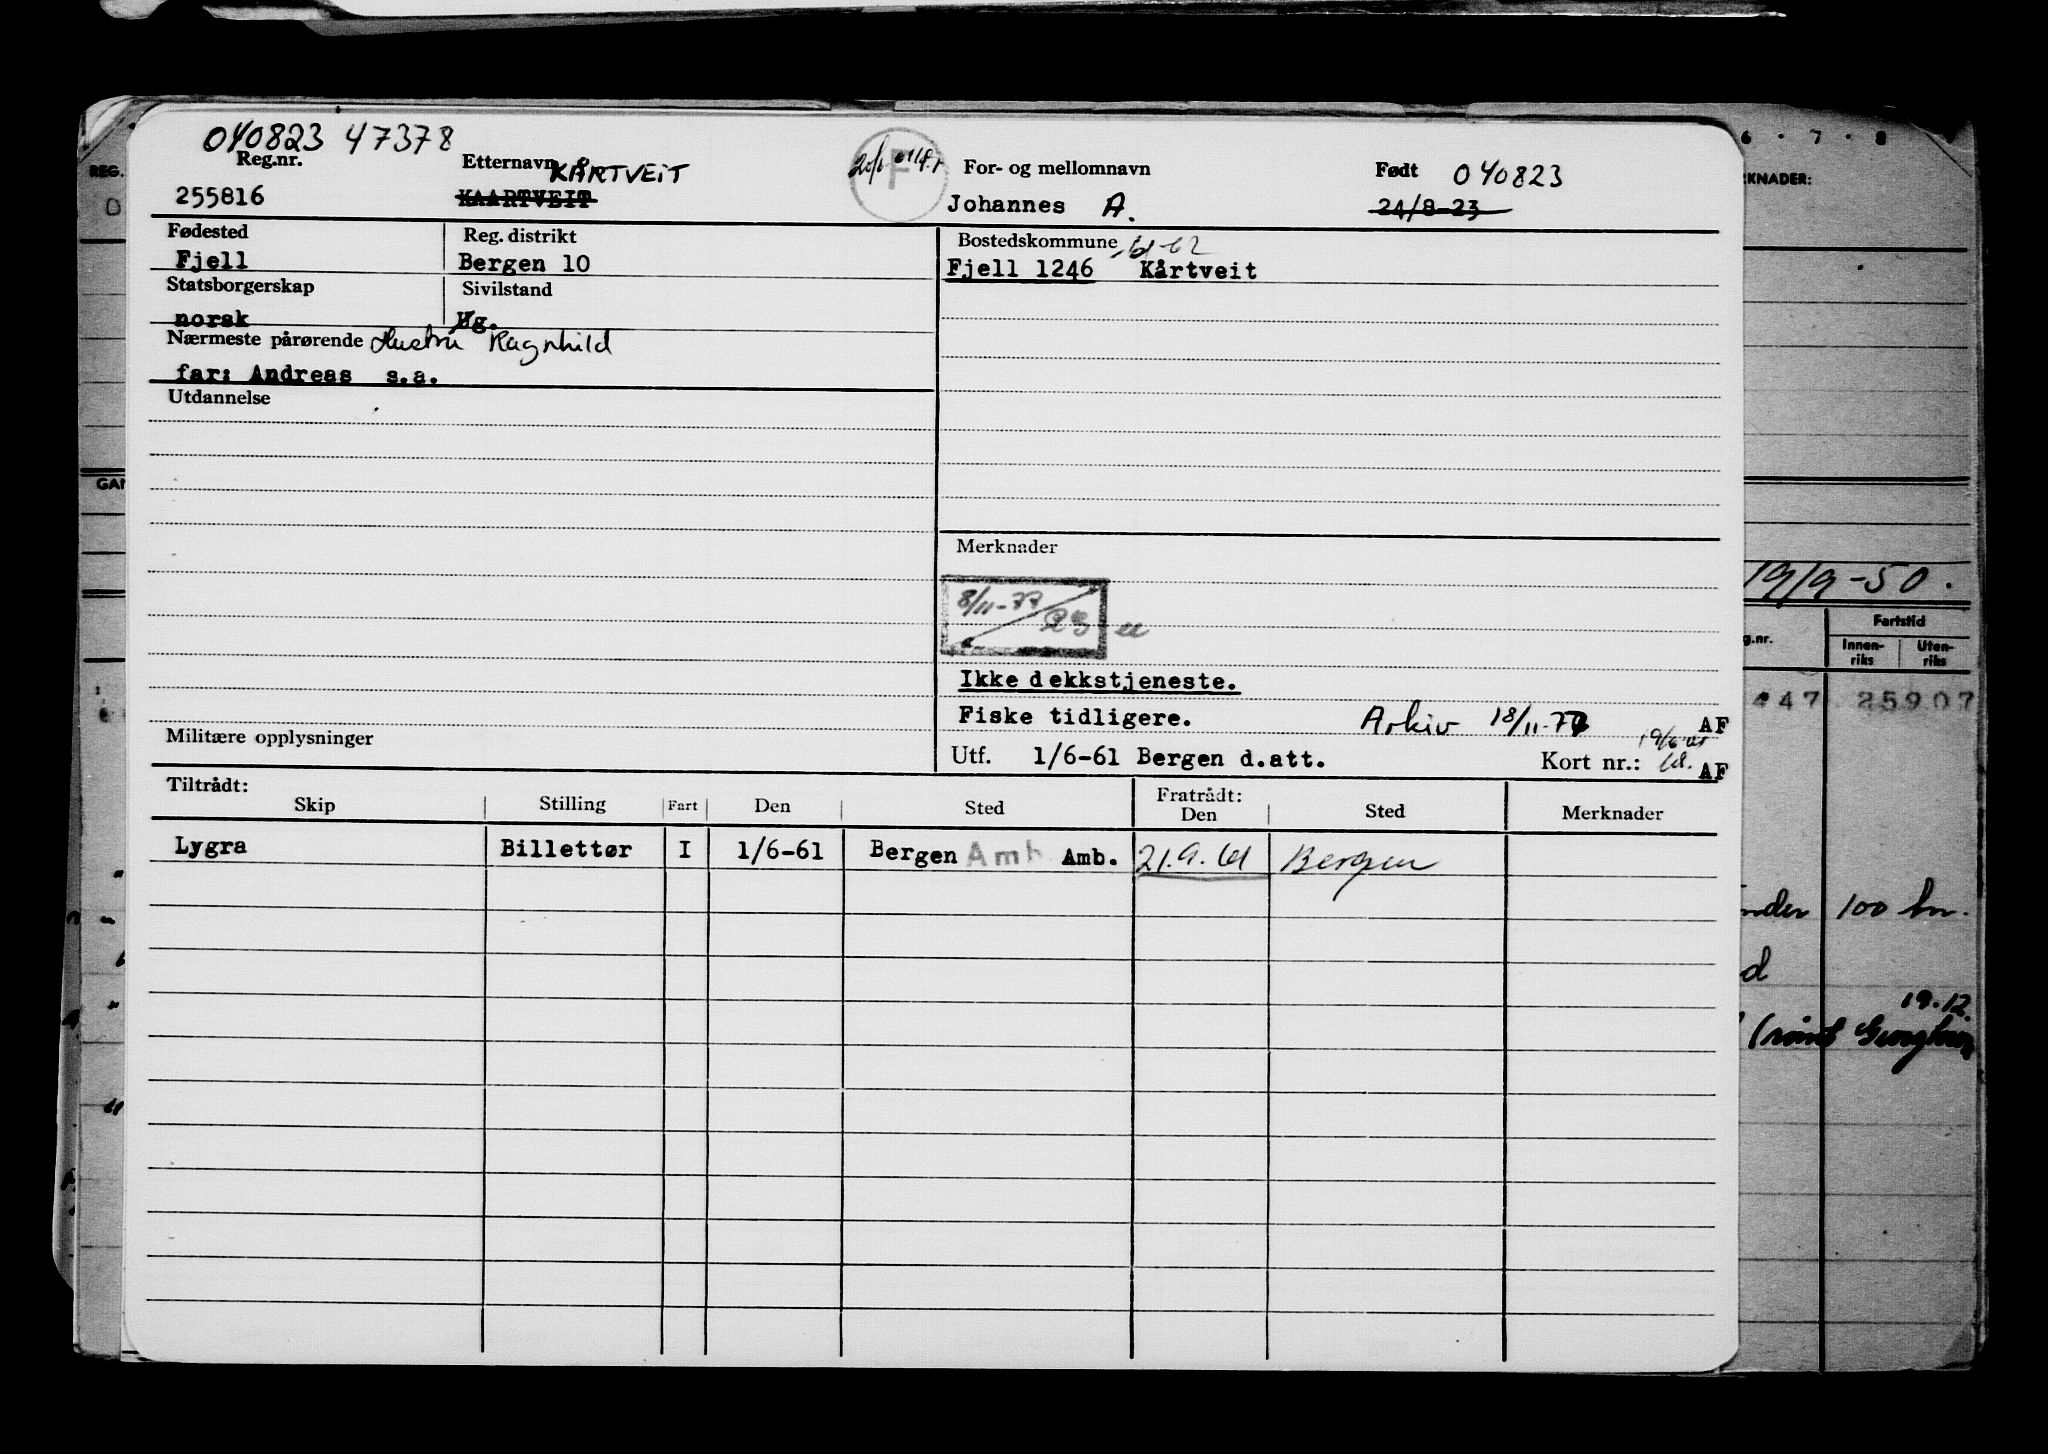 040823 47378
Reg.nr. Etternavn KÅRTVEIT F For- og mellomnavn Født 040823
255816 KAARTVEIT Johannes A. 24/8-23
Fødested Reg. distrikt Bostedskommune 61-62
Fjell Bergen 10 Fjell 1246 Kårtveit
Statsborgerskap Sivilstand
norsk Ug.
Nærmeste pårørende Hustru Ragnhild
far: Andreas s.a.
Utdannelse
Merknader
8/11-77
Ikke dekkstjeneste.
Fiske tidligere. Arkiv 18/11-77 AF
Militære opplysninger
Utf. 1/6-61 Bergen d.att. Kort nr.: AF
Tiltrådt: Fratrådt:
Skip Stilling Fart Den Sted Den Sted Merknader
Lygra Billettør I 1/6-61 Bergen Amb Amb. 21.9.61 Bergen
REG.
GAN
6 • 7 • 8
KNADER:
19/9-50.
g.nr. Fartstid
Innen- Uten-
riks riks
47 25907
nder 100 kr.
d
19.12.